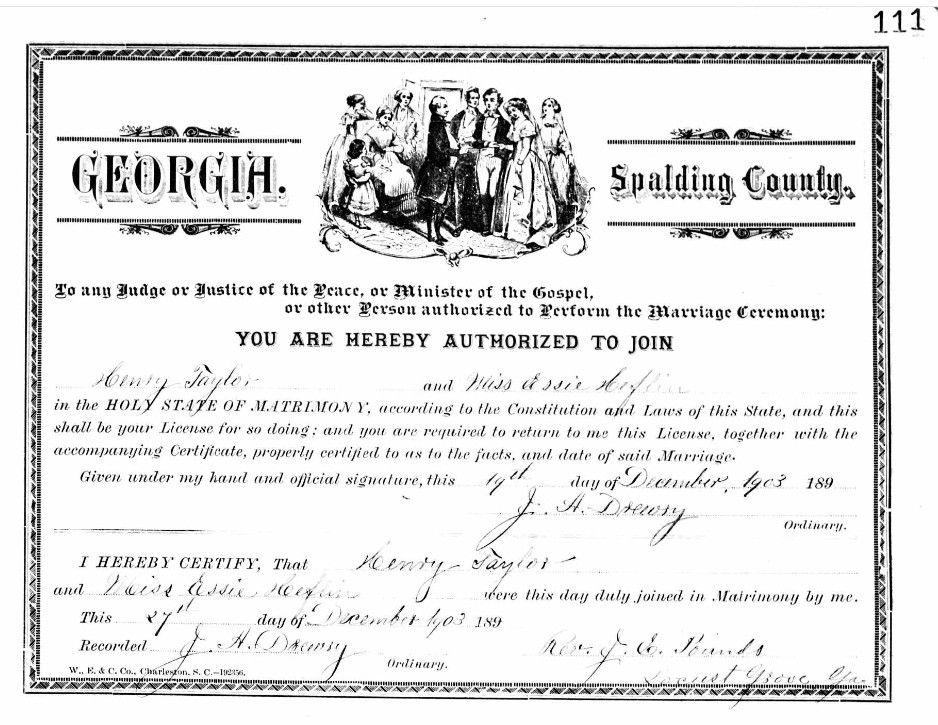 111
GEORGIA.
Spalding County.
To any Judge or Justice of the Peace, or Minister of the Gospel,
or other Person authorized to Perform the Marriage Ceremony:
YOU ARE HEREBY AUTHORIZED TO JOIN
Henry Taylor and Miss Essie Heflin
in the HOLY STATE OF MATRIMONY, according to the Constitution and Laws of this State, and this
shall be your License for so doing; and you are required to return to me this License, together with the
accompanying Certificate, properly certified to as to the facts, and date of said Marriage.
Given under my hand and official signature, this 19th day of December, 1903 189
J. A. Drewry
Ordinary.
I HEREBY CERTIFY, That Henry Taylor
and Miss Essie Heflin were this day duly joined in Matrimony by me.
This 27th day of December 1903 189
Recorded J. A. Drewry Ordinary. Rev. J. E. Pounds
W., E. & C. Co., Charleston, S. C.—192356. Locust Grove Ga